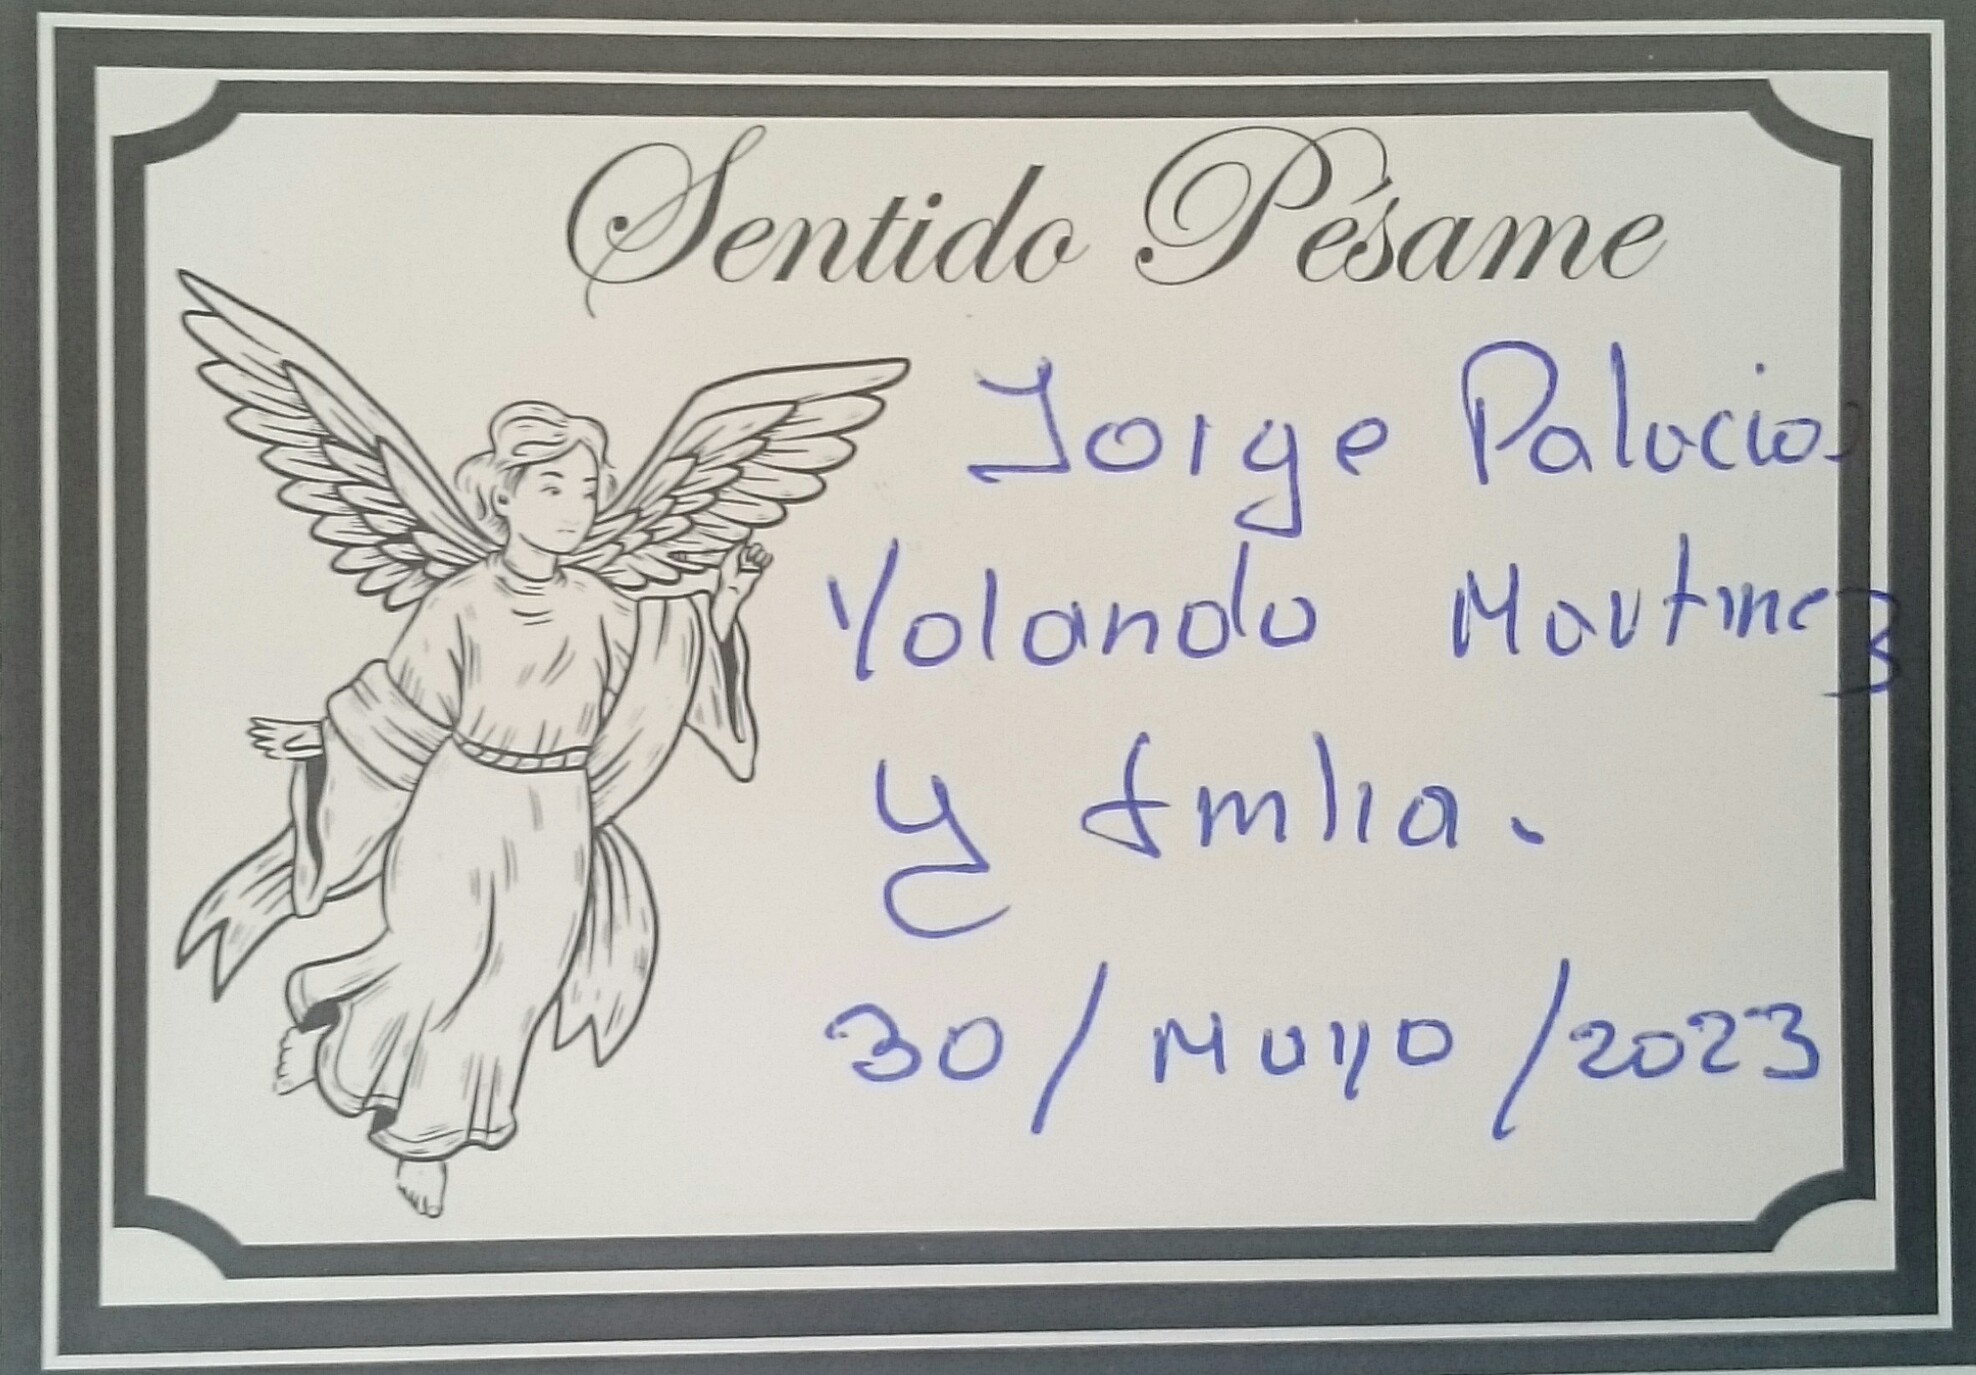 Sentido Pésame
Jorge Palacios
Yolanda Martinez
y fmlia.
30/Mayo/2023